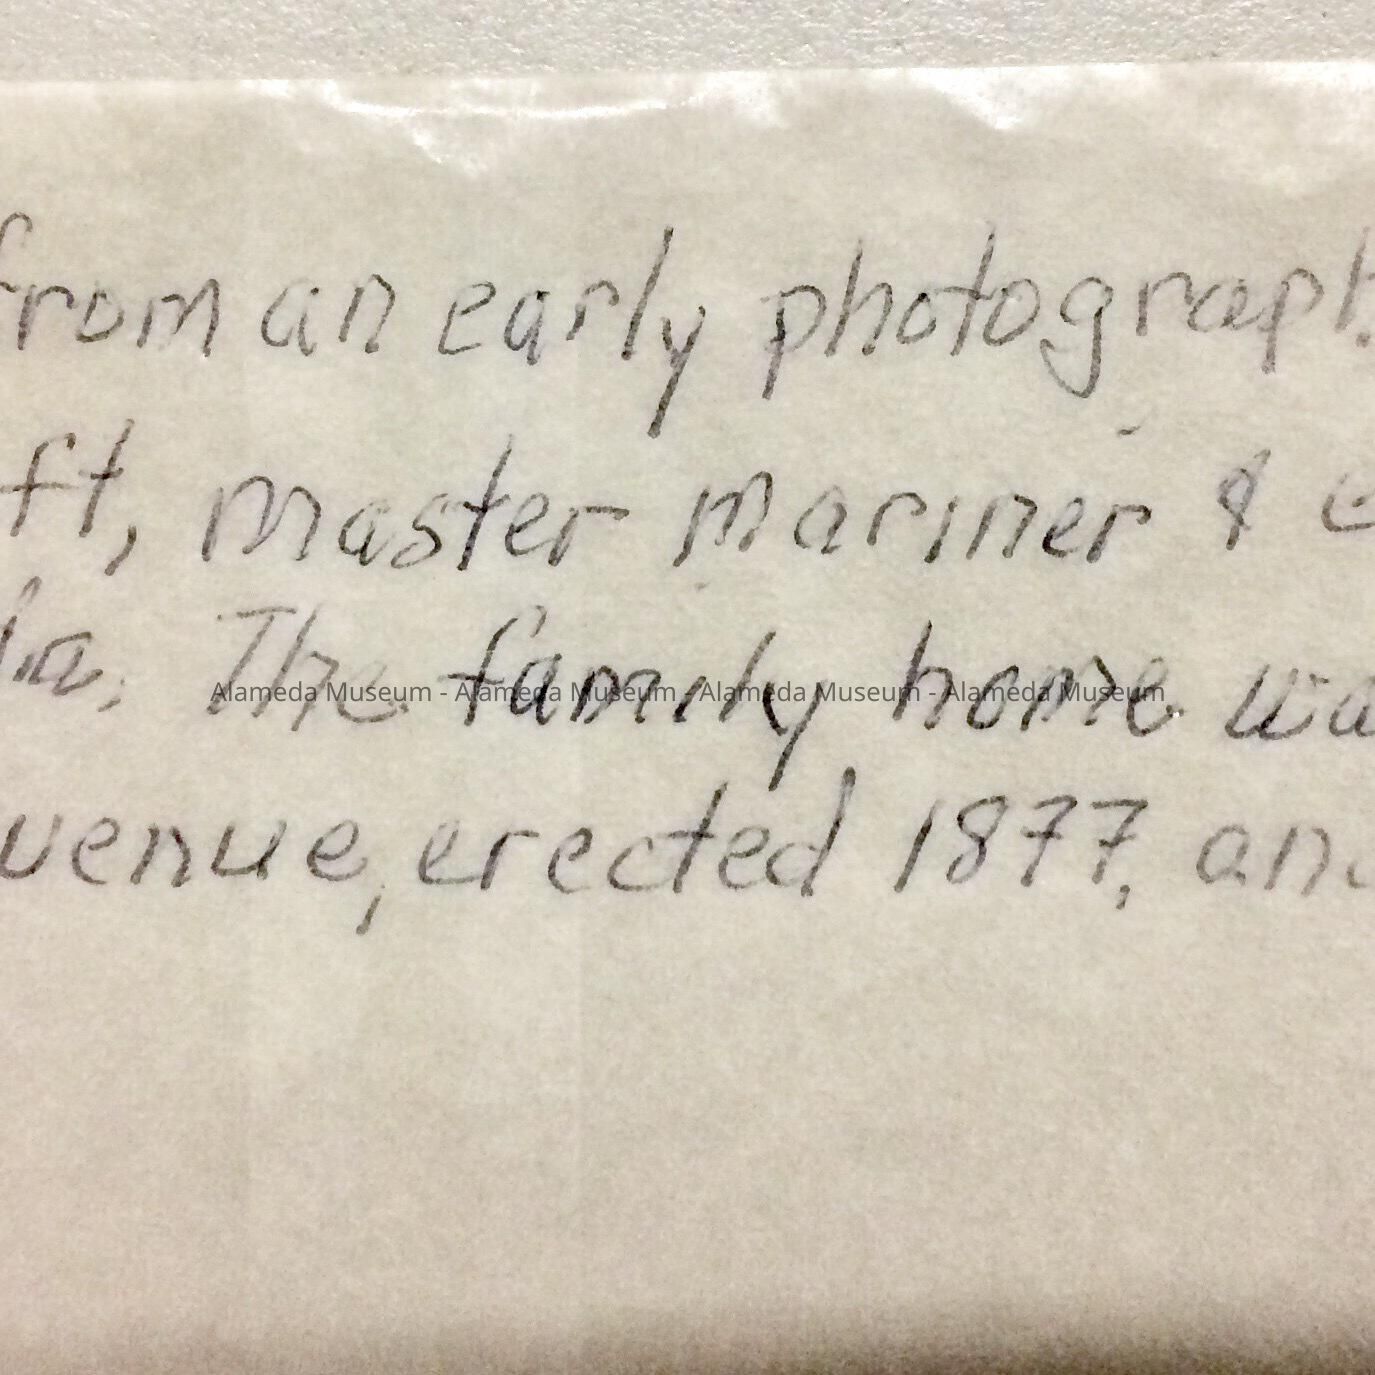 from an early photograph.
ft, master mariner & e
la. The family home wa
Alameda Museum - Alameda Museum - Alameda Museum - Alameda Museum
venue, erected 1877, and